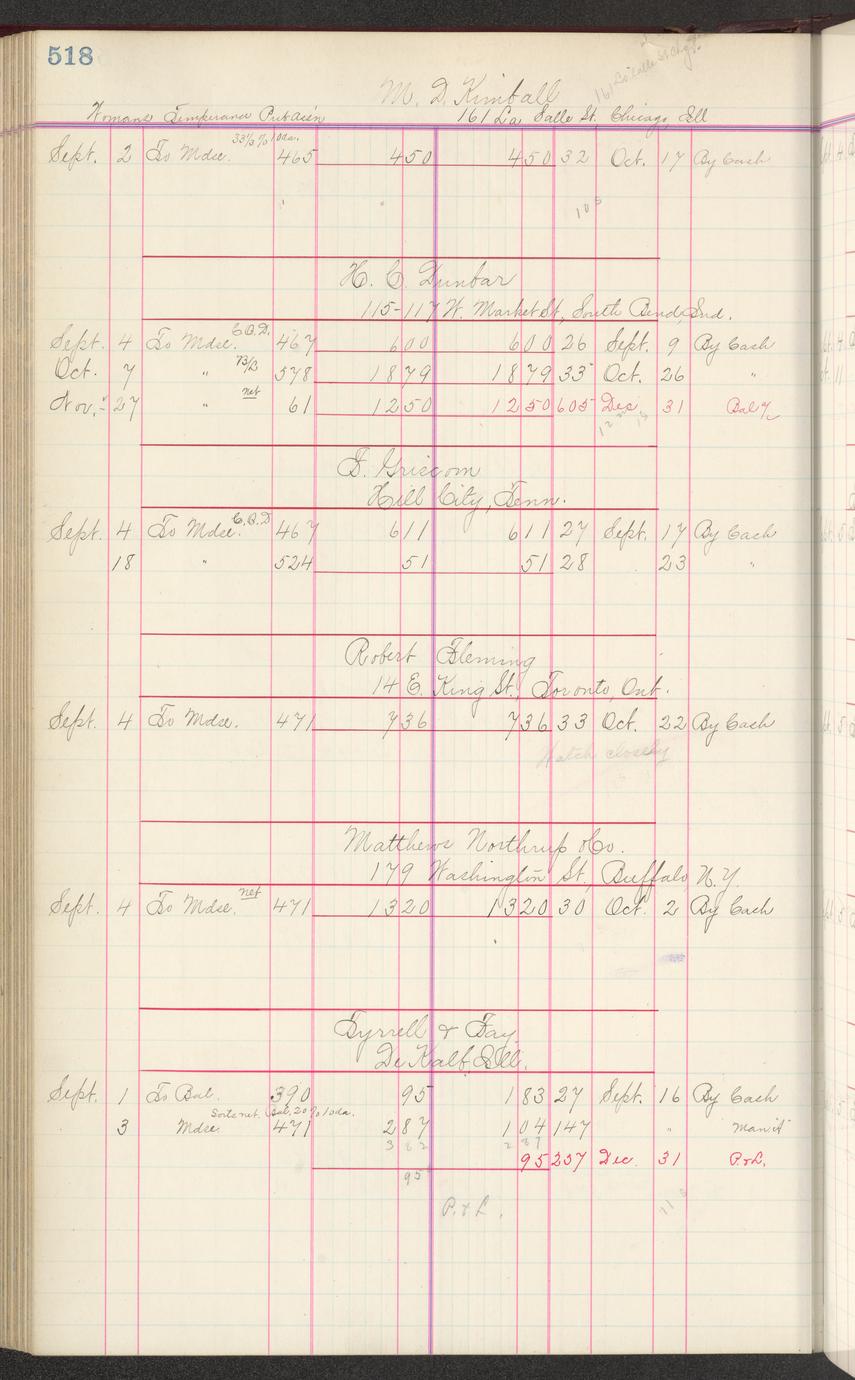 518
161 La Salle St. Chgo.
M. D. Kimball
Womans Temperance Pub Ass'n 161 La Salle St, Chicago, Ill
33⅓ % 10 da.
Sept. 2 To Mdse. 465 4 50 4 50 32 Oct. 17 By Cash
10 5
H. C. Dunbar
115-117 W. Market St, South Bend, Ind.
Sept. 4 To Mdse. C.O.D. 467 6 00 6 00 26 Sept. 9 By Cash
Oct. 7 " 578 18 79 18 79 33 Oct. 26 "
Nov. 27 " net 61 12 50 12 50 605 Dec. 31 Bal
F. Griscom
Hill City, Tenn.
Sept. 4 To Mdse. C.O.D 467 6 11 6 11 27 Sept. 17 By Cash
18 " 524 51 51 28 23 "
Robert Fleming
14 E. King St., Toronto, Ont.
Sept. 4 To Mdse. 471 7 36 7 36 33 Oct. 22 By Cash
Watch closely
Matthews Northrup & Co.
179 Washington St., Buffalo, N.Y.
Sept. 4 To Mdse. net 471 13 20 13 20 30 Oct. 2 By Cash
Tyrrell & Fay
De Kalb, Ill.
Sept. 1 To Bal. 390 95 1 83 27 Sept. 16 By Cash
Sorts net. Bal. 20 % 10 da.
3 Mdse. 471 2 87 1 04 147 " Man't
3 82 2 87
95 257 Dec. 31 P. & L.
95
P. & L.
11 5